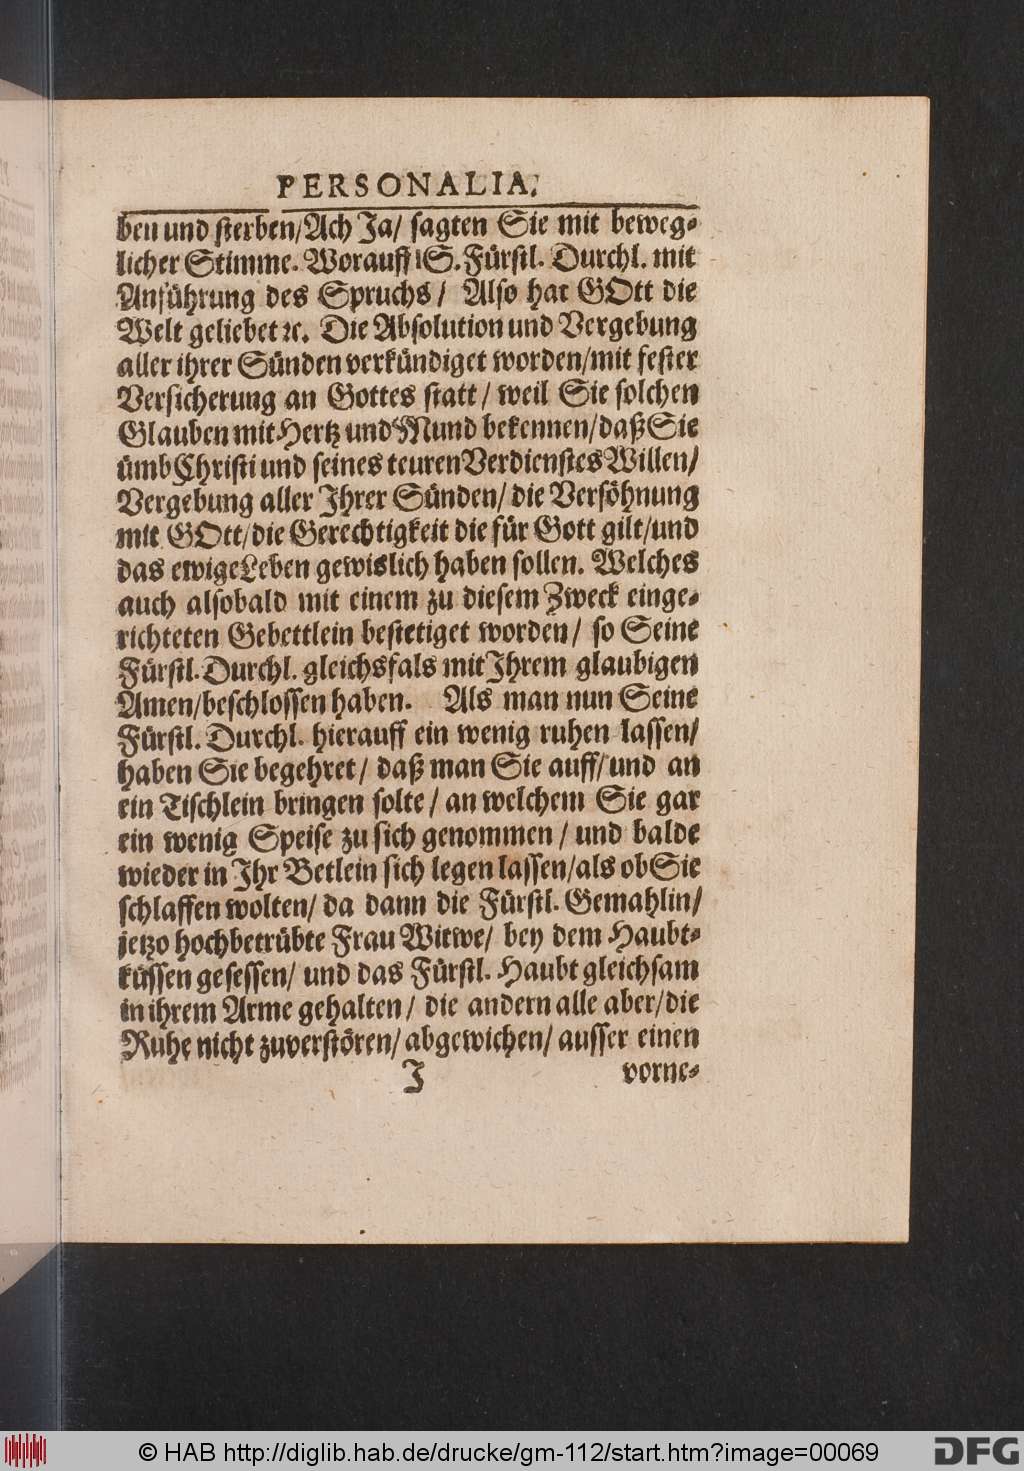 PERSONALIA.
ben und sterben/Ach Ja/ sagten Sie mit beweg-
licher Stimme. Worauff S. Fürstl. Durchl. mit
Anführung des Spruchs/ Also hat GOtt die
Welt geliebet ꝛc. Die Absolution und Vergebung
aller ihrer Sünden verkündiget worden/mit fester
Versicherung an Gottes statt/ weil Sie solchen
Glauben mit Hertz und Mund bekennen/daß Sie
ümb Christi und seines teuren Verdienstes Willen/
Vergebung aller Ihrer Sünden/ die Versöhnung
mit GOtt/die Gerechtigkeit die für Gott gilt/und
das ewige Leben gewislich haben sollen. Welches
auch alsobald mit einem zu diesem Zweck einge-
richteten Gebettlein bestetiget worden/ so Seine
Fürstl. Durchl. gleichsfals mit Ihrem glaubigen
Amen/beschlossen haben. Als man nun Seine
Fürstl. Durchl. hierauff ein wenig ruhen lassen/
haben Sie begehret/ daß man Sie auff/ und an
ein Tischlein bringen solte/ an welchem Sie gar
ein wenig Speise zu sich genommen/ und balde
wieder in Ihr Betlein sich legen lassen/als ob Sie
schlaffen wolten/ da dann die Fürstl. Gemahlin/
jetzo hochbetrübte Frau Witwe/ bey dem Haubt-
küssen gesessen/ und das Fürstl. Haubt gleichsam
in ihrem Arme gehalten/ die andern alle aber/die
Ruhe nicht zuverstören/ abgewichen/ ausser einen
J vorne-
© HAB http://diglib.hab.de/drucke/gm-112/start.htm?image=00069
DFG